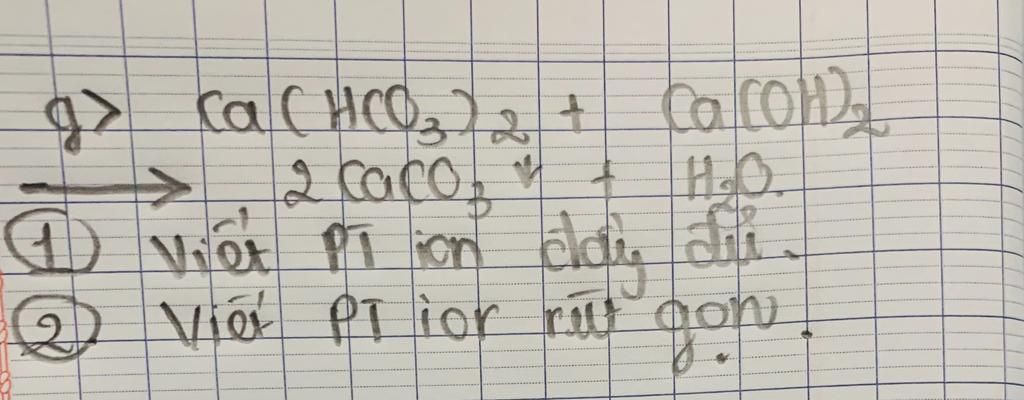 g> Ca(HCO₃)₂ + Ca(OH)₂
⟶ 2CaCO₃↓ + H₂O.
① Viết PT ion đầy đủ.
② Viết PT ion rút gọn.